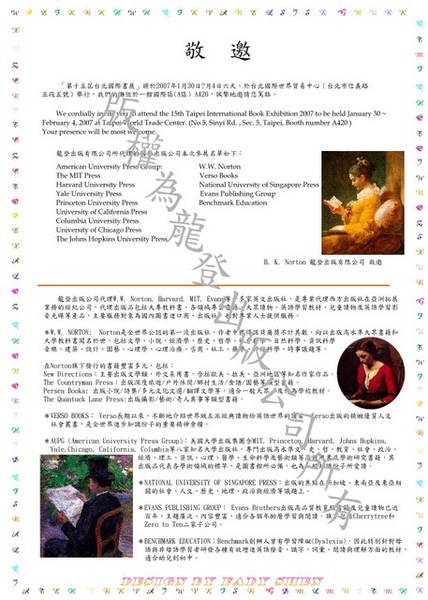 敬 邀
「第十五屆台北國際書展」將於2007年1月30日?月4日六天,於台北國際世界貿易中心(台北市信義路
五段五號)舉行,我們的攤位於一館國際區(A區) A420,誠摯地邀請您駕臨。
We cordially invite you to attend the 15th Taipei International Book Exhibition 2007 to be held January 30 ~
February 4, 2007 at Taipei World Trade Center. (No.5, Sinyi Rd. , Sec. 5, Taipei, Booth number A420 )
Your presence will be most welcome.
龍登出版有限公司所代理的 出版公司本次參展名單如下:
American University Press Group: W.W. Norton
The MIT Press Verso Books
Harvard University Press National University of Singapore Press
Yale University Press Evans Publishing Group
Princeton University Press Benchmark Education
University of California Press
Columbia University Press
University of Chicago Press
The Johns Hopkins University Press
B. K. Norton 龍登出版有限公司 敬邀
龍登出版公司代理W.W. Norton, Harvard, MIT, Evans等 多家英文出版社,是專業代理西方出版社在亞洲拓展
業務的經紀公司,代理出版品包括大專教科書、各領域專 大眾讀物、英語學習教材、兒童讀物及語
音光碟等產品,主要服務對象為國內圖書進口商、出版社、 專業人士提供服務。
*W.W. NORTON: Norton是全世界公認的第一流出版社,作者 諾貝爾獎不計其數,向以出版高水準大眾書籍和
大學教科書聞名於世,包括文學、小說、經濟學、歷史、哲學、 自然科學、資訊科學
音樂、建築、設計、園藝、心理學、心理治療、 社工、 科學、時事議題等。
由Norton旗下發行的書籍豐富多元,包括:
New Directions:主要出版文學類,外文系用書,含括歐美、拉美、亞洲地區等知名作家作品。
The Countryman Press:出版深度旅遊/戶外休閒/鄉村生活/食譜/園藝等類型書籍。
Persea Books:出版小說/詩集/多元文化文選/翻譯文學等,適合一般大眾 為學校教材。
The Quantuck Lane Press:出版攝影/藝術/奇人異事等類型書籍。
*VERSO BOOKS: Verso長期以來,不斷地介紹世界級左派經典讀物給英語世界的讀者 Verso出版的精緻優質人文
社會叢書,是全世界進步知識份子的重要精神食糧。
*AUPG (American University Press Group):美國大學出版集團含MIT, Princeton, Harvard, Johns Hopkins,
Yale,Chicago, California, Columbia等八家知名大學出版社,專門出版高水準文、史、哲、教育、社會、政治、
經濟、理工、資訊、心理、醫學、生命科學及藝術類等 學術研究書籍,其
出版品代表各學術領域的標竿,是圖書館所必備,也為一般 份子所愛讀。
*NATIONAL UNIVERSITY OF SINGAPORE PRESS:出版的焦點在新加坡、東南亞及東亞相
關的社會、人文、歷史、地理、政治與經濟等議題上。
*EVANS PUBLISHING GROUP: Evans Brothers出版高品質教育 及兒童讀物已近
百年,主題廣泛、內容豐富,適合各個年齡層學習與閱讀,旗下包 Cherrytree和
Zero to Ten二家子公司。
*BENCHMARK EDUCATION:Benchmark創辦人曾有學習障礙(Dyslexia),因此特別針對母
語與非母語學習者研發各種有效增進英語發音、識字、詞彙、閱讀與理解方面的教材,
適合的兒到初中。
DESIGN BY FADY CHEN
版權為龍登出版公司所有